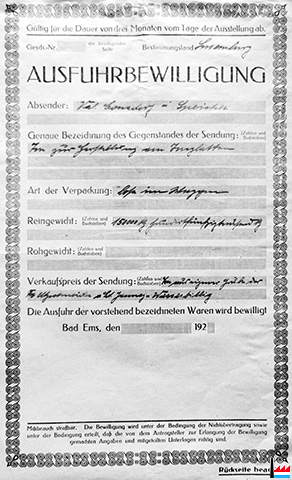 Gültig für die Dauer von drei Monaten vom Tage der Ausstellung ab.
Gesds-Nr. der bewilligenden Stelle Bestimmungsland Luxemburg
AUSFUHRBEWILLIGUNG
Absender:
Genaue Bezeichnung des Gegenstandes der Sendung: (Zahlen und Buchstaben)
Ton zur Herstellung von
Art der Verpackung: lose im Waggon
Reingewicht: (Zahlen und Buchstaben) 150000 kg
Rohgewicht: (Zahlen und Buchstaben)
Verkaufspreis der Sendung: (Zahlen und Buchstaben) Ton aus eigener Grube der
Wasserbillig
Die Ausfuhr der vorstehend bezeichneten Waren wird bewilligt
Bad Ems, den 192
Mißbrauch strafbar. Die Bewilligung wird unter der Bedingung der Nichtübertragung sowie
unter der Bedingung erteilt, daß die von dem Antragsteller zur Erlangung der Bewilligung
gemachten Angaben und mitgeteilten Unterlagen richtig sind.
Rückseite bea